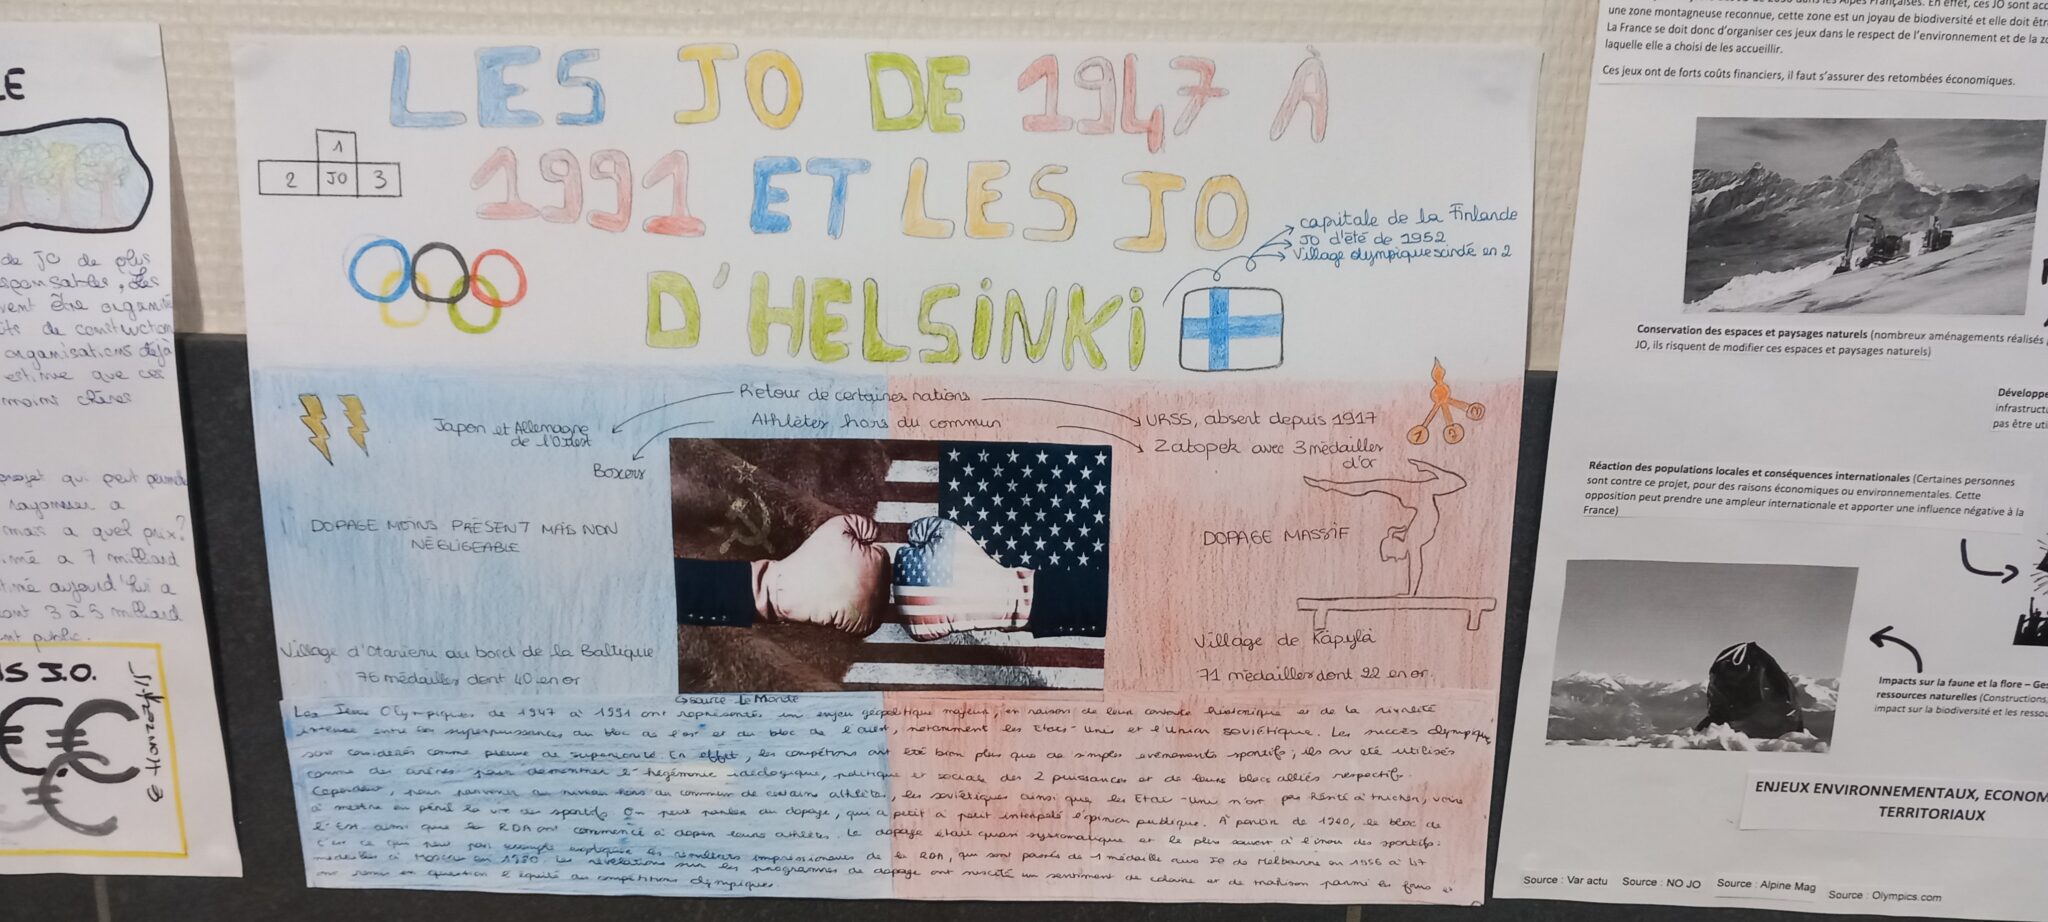 LES JO DE 1947 À
1991 ET LES JO
D'HELSINKI
1
2 JO 3
capitale de la Finlande
JO d'été de 1952
Village olympique scindé en 2
Retour de certaines nations
Athlètes hors du commun
Japon et Allemagne
de l'Ouest
Boxeurs
URSS, absent depuis 1917
Zatopek avec 3 médailles
d'or
DOPAGE MOINS PRÉSENT MAIS NON
NÉGLIGEABLE
DOPAGE MASSIF
Village d'Otaniemi au bord de la Baltique
76 médailles dont 40 en or
Village de Käpylä
71 médailles dont 22 en or
source Le Monde
Les Jeux Olympiques de 1947 à 1991 ont représentés un enjeu géopolitique majeur, en raison de leur contexte historique et de la rivalité
intense entre les superpuissances du bloc de l'est et du bloc de l'ouest, notamment les Etats-Unis et l'Union SOVIÉTIQUE. Les succès olympiques
sont considérés comme preuve de supériorité. En effet, les compétitions ont été bien plus que de simples événements sportifs; ils ont été utilisés
comme des arènes pour démontrer l'hégémonie idéologique, politique et sociale des 2 puissances et de leurs blocs alliés respectifs.
Cependant, pour parvenir au niveau hors du commun de certains athlètes, les soviétiques ainsi que les Etat-Unis n'ont pas hésité à tricher, voire
à mettre en péril la vie de sportifs. On peut parler du dopage, qui a petit à petit interpelé l'opinion publique. À partir de 1960, le bloc de
l'Est ainsi que la RDA ont commencé à doper leurs athlètes. Le dopage était quasi systématique et le plus souvent à l'insu des sportifs.
C'est ce qui peut par exemple expliquer les résultats impressionnants de la RDA, qui sont passés de 1 médaille aux JO de Melbourne en 1956 à 47
médailles à Moscou en 1980. Les révélations sur les programmes de dopage ont suscité un sentiment de colère et de trahison parmi les fans et
ont remis en question l'équité des compétitions olympiques.
LE
de JO de plus
responsables, Les
vent être organisé
de construction
organisations déjà
estime que ces
moins chères
projet qui peut
rayonner a
mais a quel prix?
a 7 milliard
aujourd'hui a
3 à 5 milliard
public.
S J.O.
une zone montagneuse reconnue, cette zone est un joyau de biodiversité et elle doit être
La France se doit donc d'organiser ces jeux dans le respect de l'environnement et de la zo
laquelle elle a choisi de les accueillir.
Ces jeux ont de forts coûts financiers, il faut s'assurer des retombées économiques.
Conservation des espaces et paysages naturels (nombreux aménagements réalisés
JO, ils risquent de modifier ces espaces et paysages naturels)
Développe
infrastructu
pas être uti
Réaction des populations locales et conséquences internationales (Certaines personnes
sont contre ce projet, pour des raisons économiques ou environnementales. Cette
opposition peut prendre une ampleur internationale et apporter une influence négative à la
France)
Impacts sur la faune et la flore – Ges
ressources naturelles (Constructions,
impact sur la biodiversité et les ressou
ENJEUX ENVIRONNEMENTAUX, ECONOM
TERRITORIAUX
Source : Var actu Source : NO JO Source : Alpine Mag Source : Olympics.com